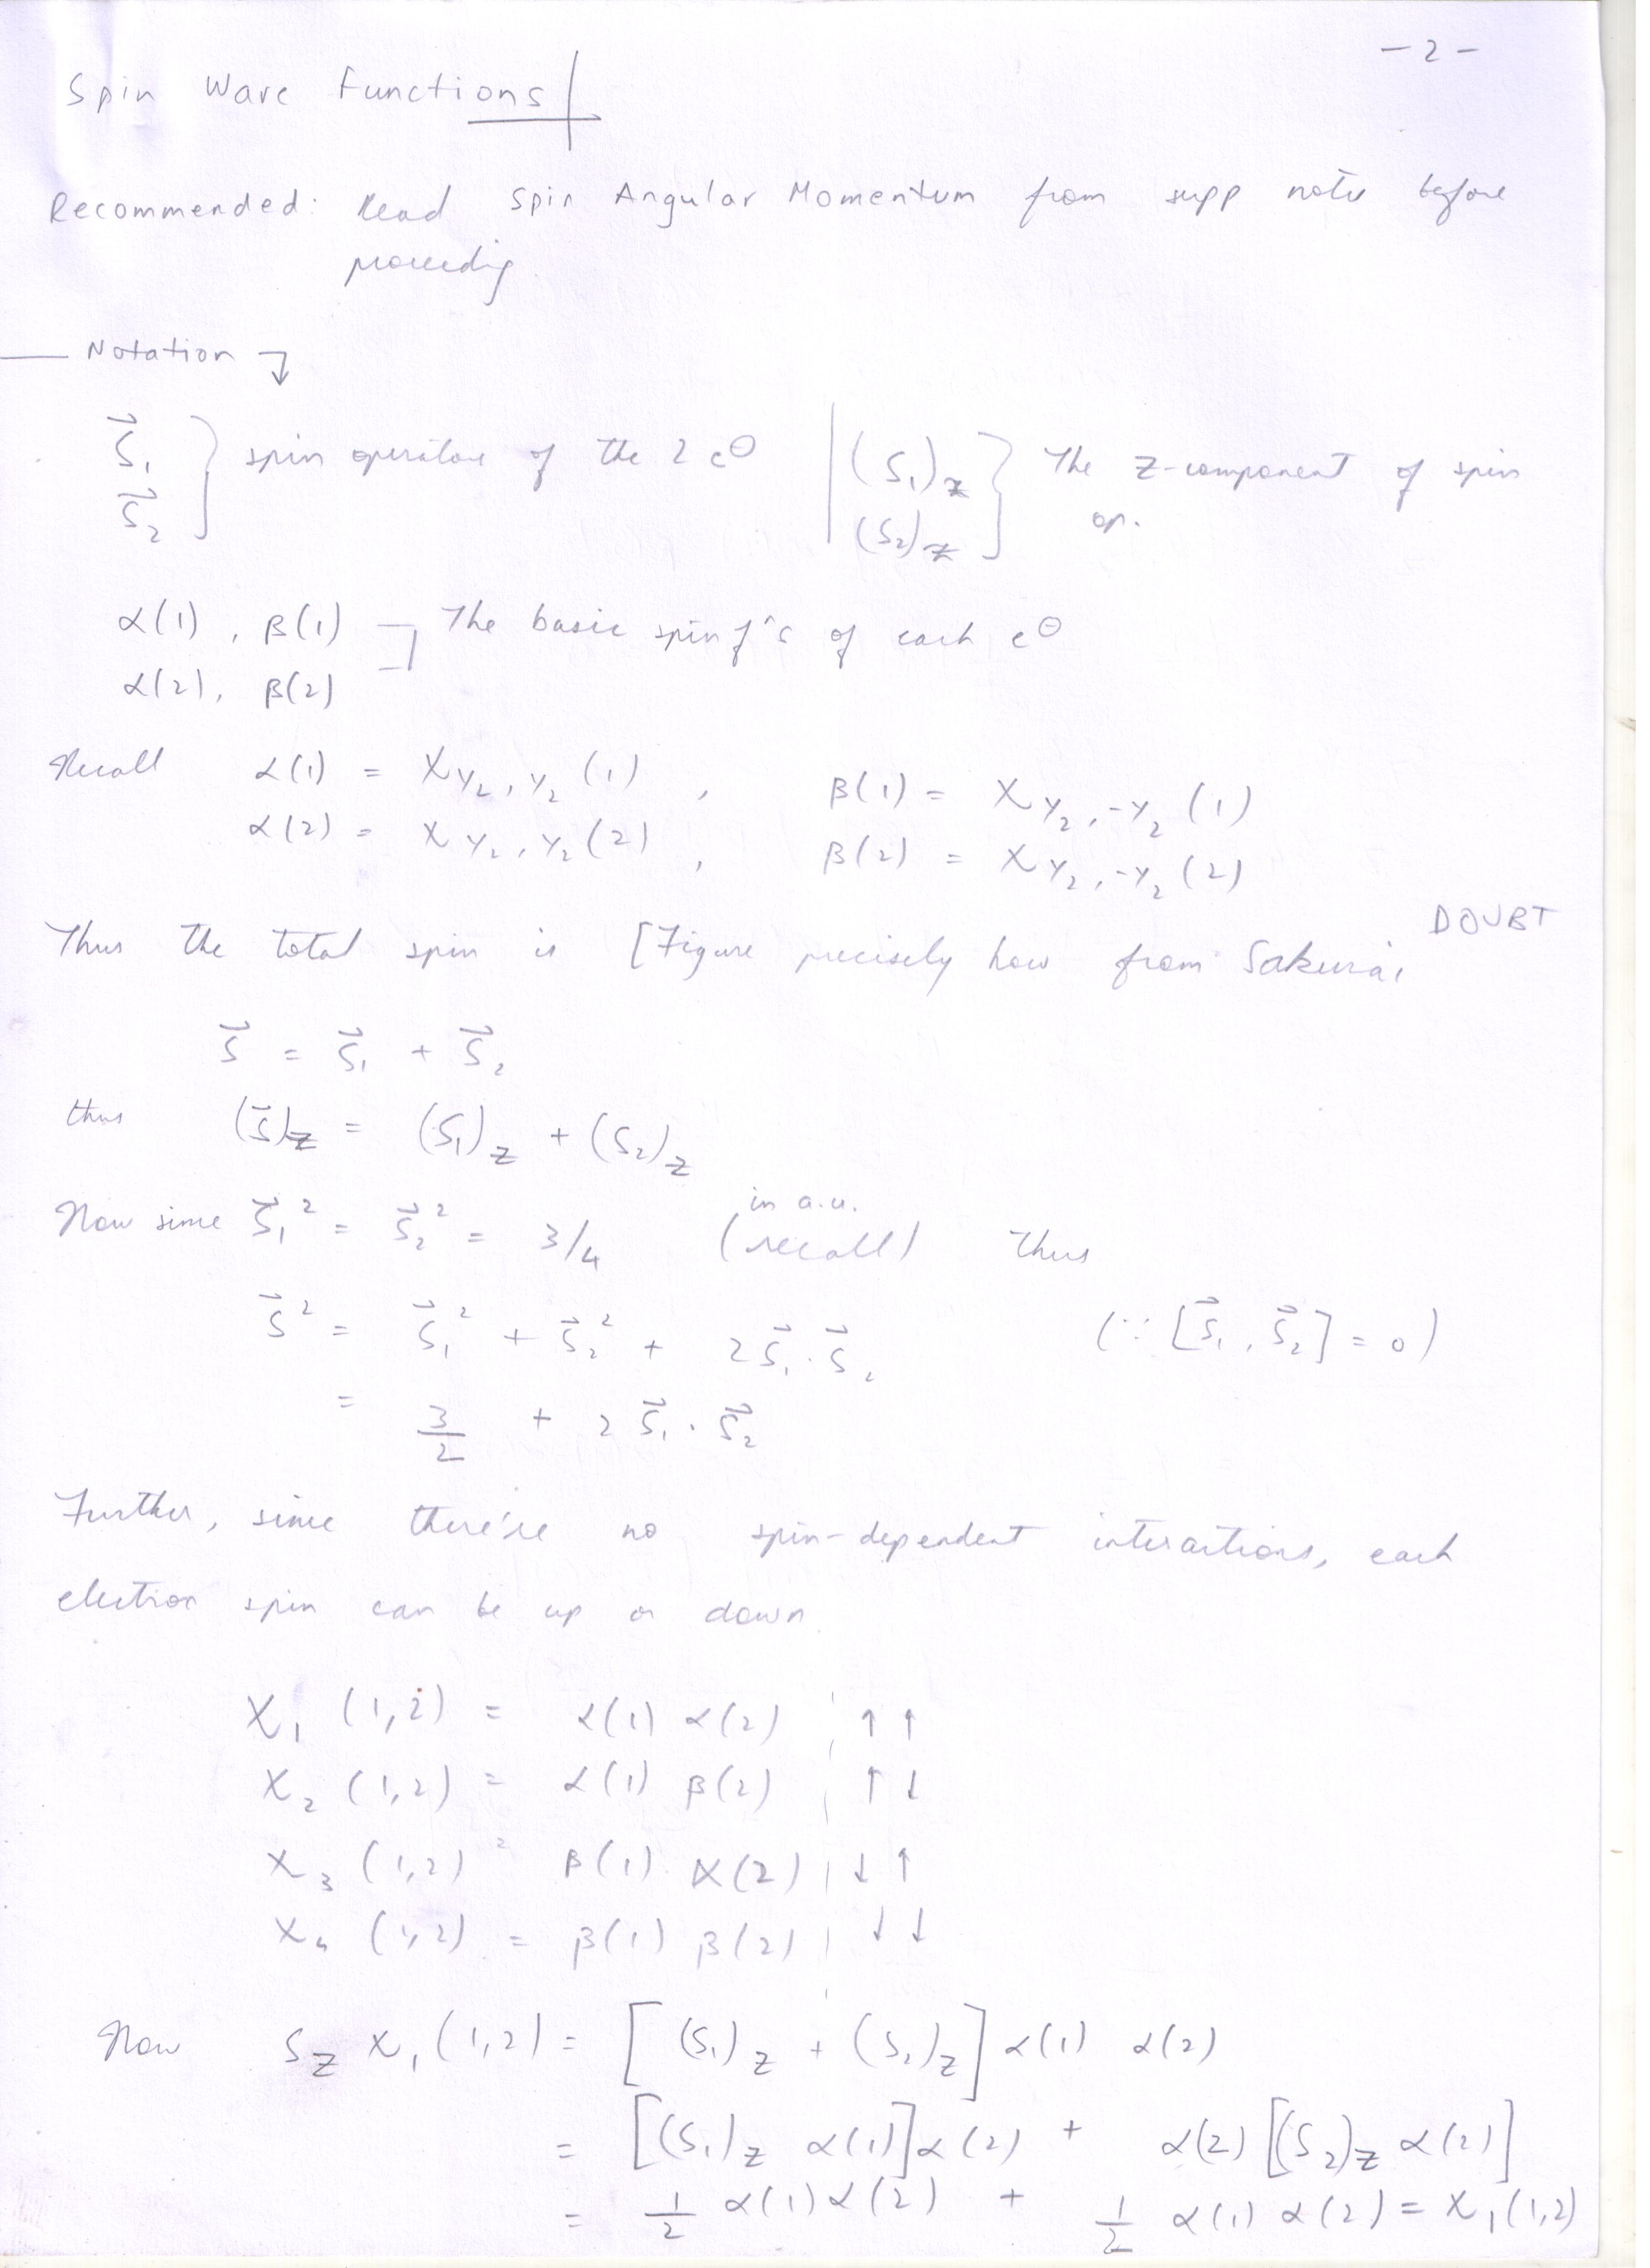 - 2 -
Spin Wave Functions
Recommended: Read Spin Angular Momentum from supp note before
proceeding
Notation ↴
S⃗₁ } spin operators of the 2 e⊖ | (S₁)z } The z-component of spin
S⃗₂ (S₂)z op.
α(1), β(1) The basic spin f's of each e⊖
α(2), β(2)
Recall α(1) = χ½,½ (1) , β(1) = χ½,-½ (1)
α(2) = χ½,½ (2) , β(2) = χ½,-½ (2)
DOUBT
Thus the total spin is [Figure precisely how from Sakurai
S⃗ = S⃗₁ + S⃗₂
thus (S⃗)z = (S₁)z + (S₂)z
Now since S⃗₁² = S⃗₂² = 3/4 (recall) in a.u. Thus
S⃗² = S⃗₁² + S⃗₂² + 2S⃗₁·S⃗₂ (∵ [S⃗₁, S⃗₂] = 0)
= 3/2 + 2 S⃗₁·S⃗₂
Further, since there're no spin-dependent interactions, each
electron spin can be up or down.
χ₁ (1,2) = α(1) α(2) | ↑ ↑
χ₂ (1,2) = α(1) β(2) | ↑ ↓
χ₃ (1,2) = β(1) α(2) | ↓ ↑
χ₄ (1,2) = β(1) β(2) | ↓ ↓
Now Sz χ₁(1,2) = [(S₁)z + (S₂)z] α(1) α(2)
= [(S₁)z α(1)] α(2) + α(2) [(S₂)z α(2)]
= 1/2 α(1) α(2) + 1/2 α(1) α(2) = χ₁(1,2)